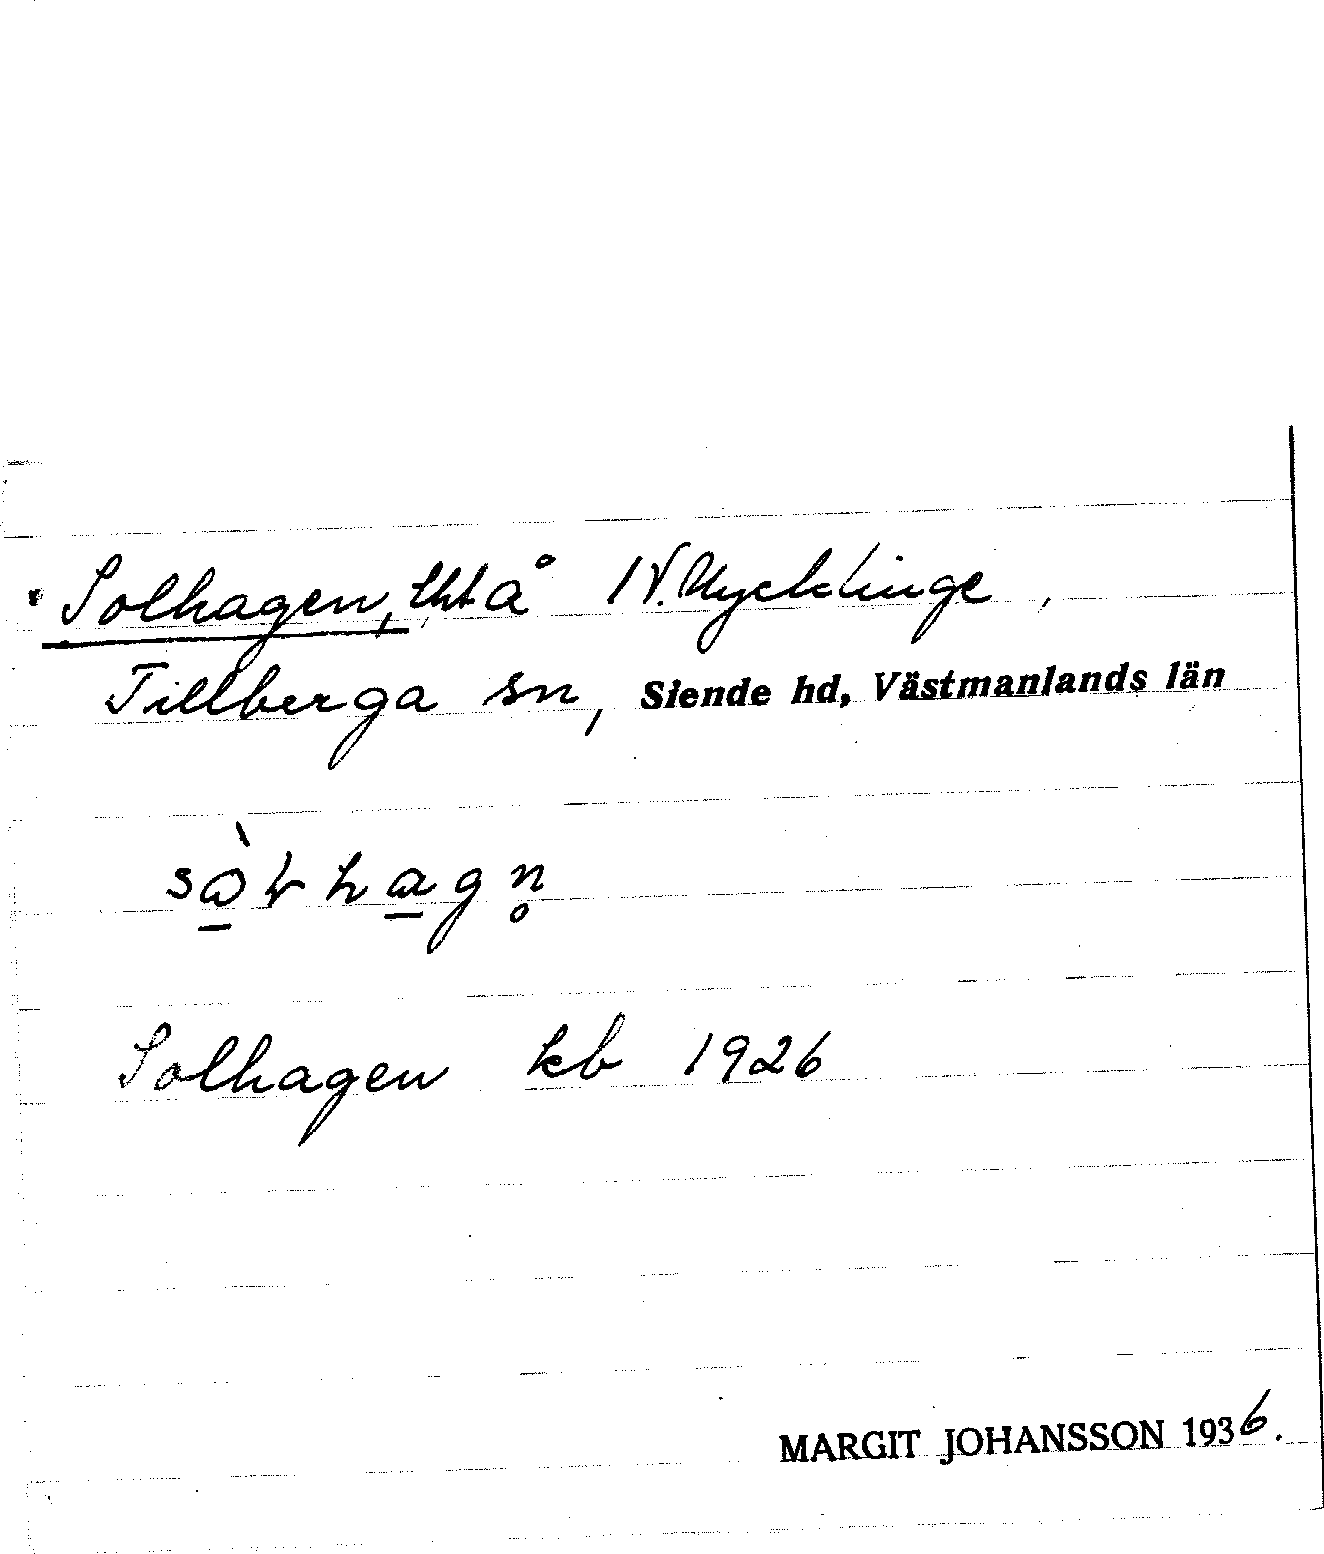 Solhagen, lht å N. Mycklinge,
Tillberga sn, Siende hd, Västmanlands län
Solhagen kb 1926
MARGIT JOHANSSON 1936.